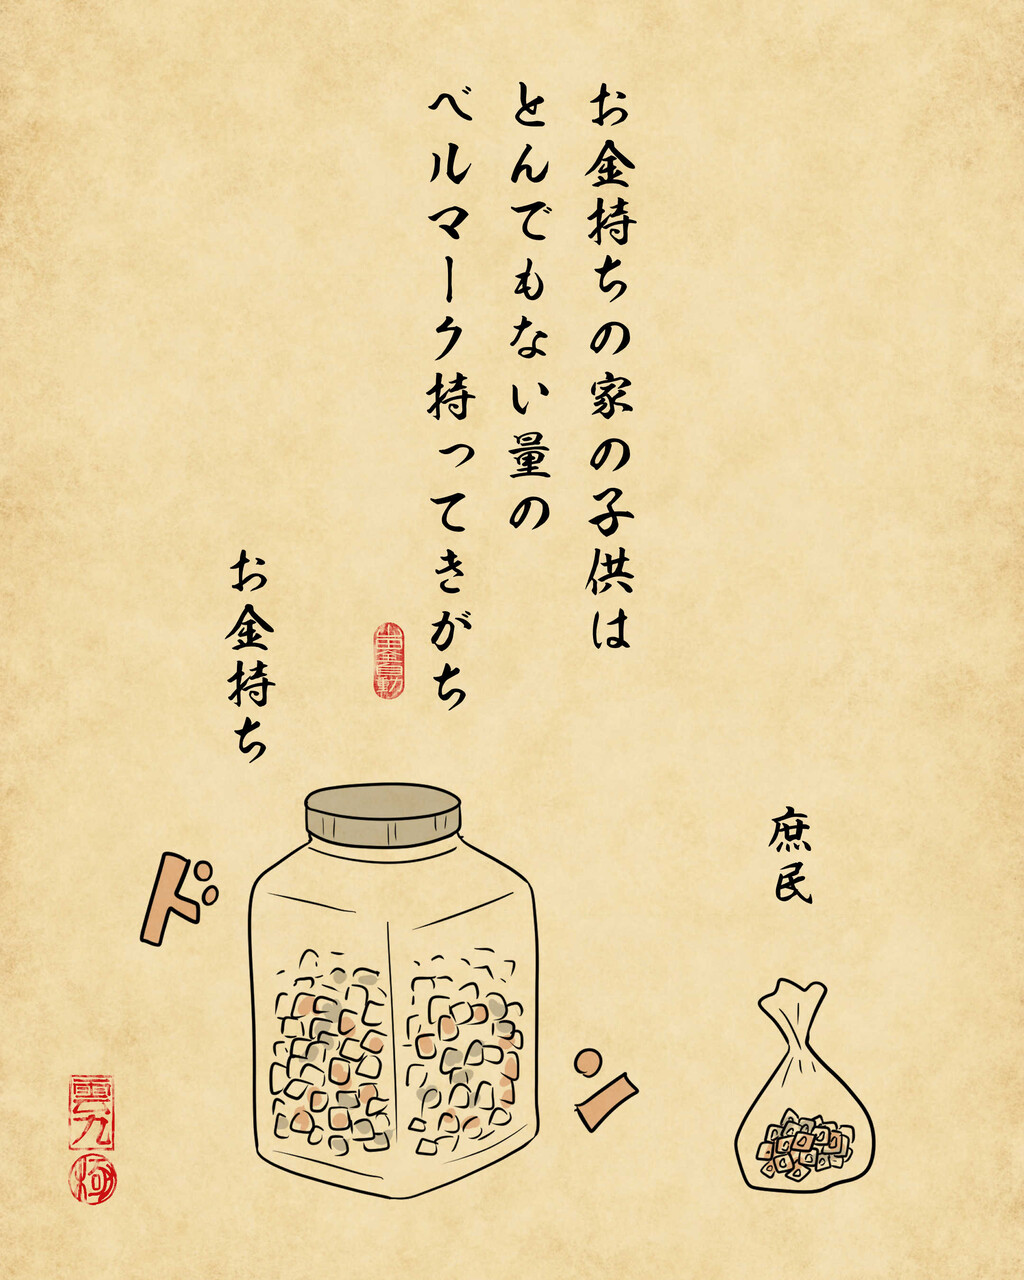 お金持ちの家の子供は
とんでもない量の
ベルマーク持ってきがち
お金持ち
庶民
ドン